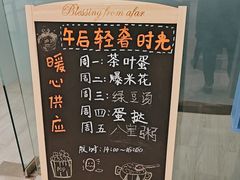 Blessing from afar
午后轻奢时光
暖心供应
周一:茶叶蛋
周二:爆米花
周三:绿豆汤
周四:蛋挞
周五:八宝粥
14:00~16:00